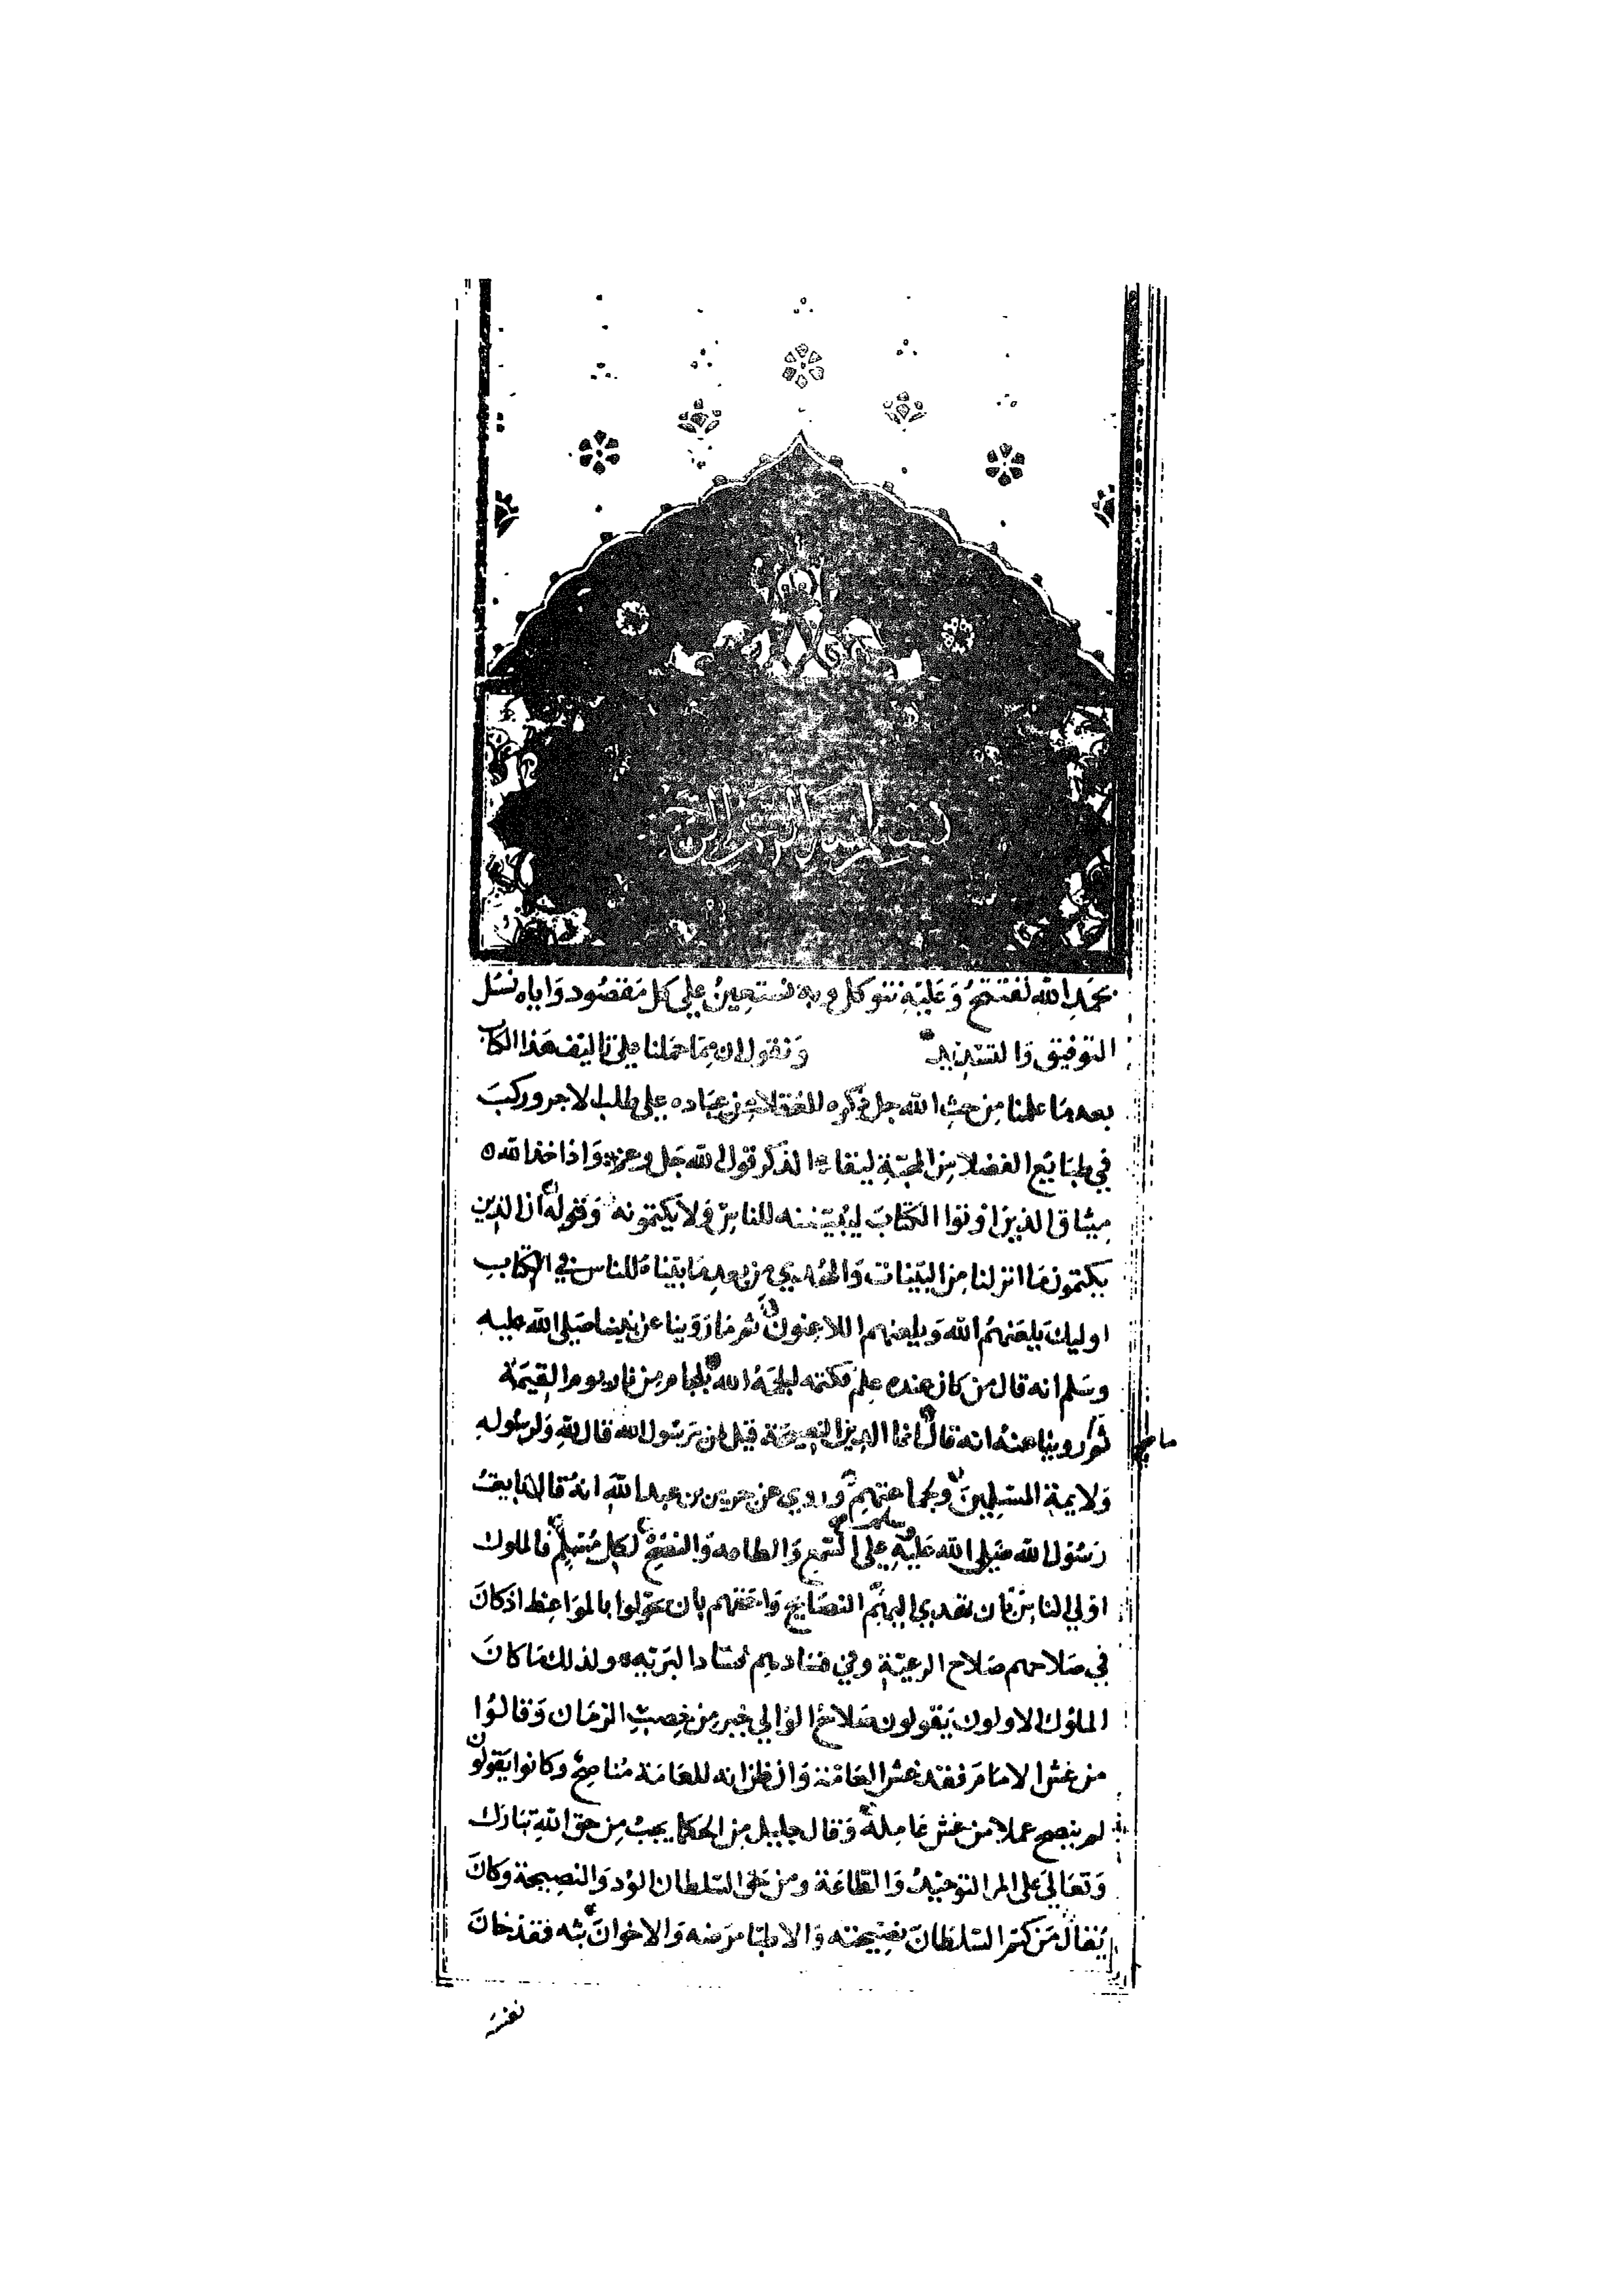 بسم الله الرحمن الرحيم
بحمد الله نفتتح وعليه نتوكل وبه نستعين على كل مقصود واياه نسل
التوفيق والتسديد ونقول ان مما حملنا على تاليف هذا الكتاب
بعد ما علمنا من حث الله جل ذكره للعقلا من عباده على طلب الاجر وركب
في طبايع الفضلا من المحبة لبقاء الذكر قول الله جل وعز واذ اخذ الله
ميثاق الذين اوتوا الكتاب ليبيننه للناس ولا يكتمونه وقوله ان الذين
يكتمون ما انزلنا من البينات والهدي من بعد ما بيناه للناس في الكتاب
اوليك يلعنهم الله ويلعنهم اللاعنون ثم ما روينا عن نبينا صلى الله عليه
وسلم انه قال من كان عنده علم فكتمه الجمه الله بلجام من نار يوم القيمة
ثم روينا عنه انه قال انما الدين النصيحة قيل لمن يرسول الله قال لله ولرسوله
ولايمة المسلمين ولجماعتهم وروي عن جرير بن عبد الله انه قال بايعت
رسول الله صلى الله عليه وسلم على السمع والطاعه والنصح لكل مسلم فالملوك
اولى الناس بان تهدي اليهم النصايح واحقهم بان يخولوا بالمواعظ اذ كان
في صلاحهم صلاح الرعية وفي فسادهم فساد البريه ولذلك ما كان
الملوك الاولون يقولون صلاح الوالي خير من خصب الزمان وقالوا
من غش الامام فقد غش العامة وان ظن انه للعامة مناصح وكانوا يقولون
لم ينصح عملا من غش عامله وقال جليل من الحكما يجب من حق الله تبارك
وتعالى على المر التوحيد والطاعة ومن حق السلطان الود والنصيحة وكان
يقال من كتم السلطان نصيحته والاطبا مرضه والاخوان بثه فقد خان
نفسه